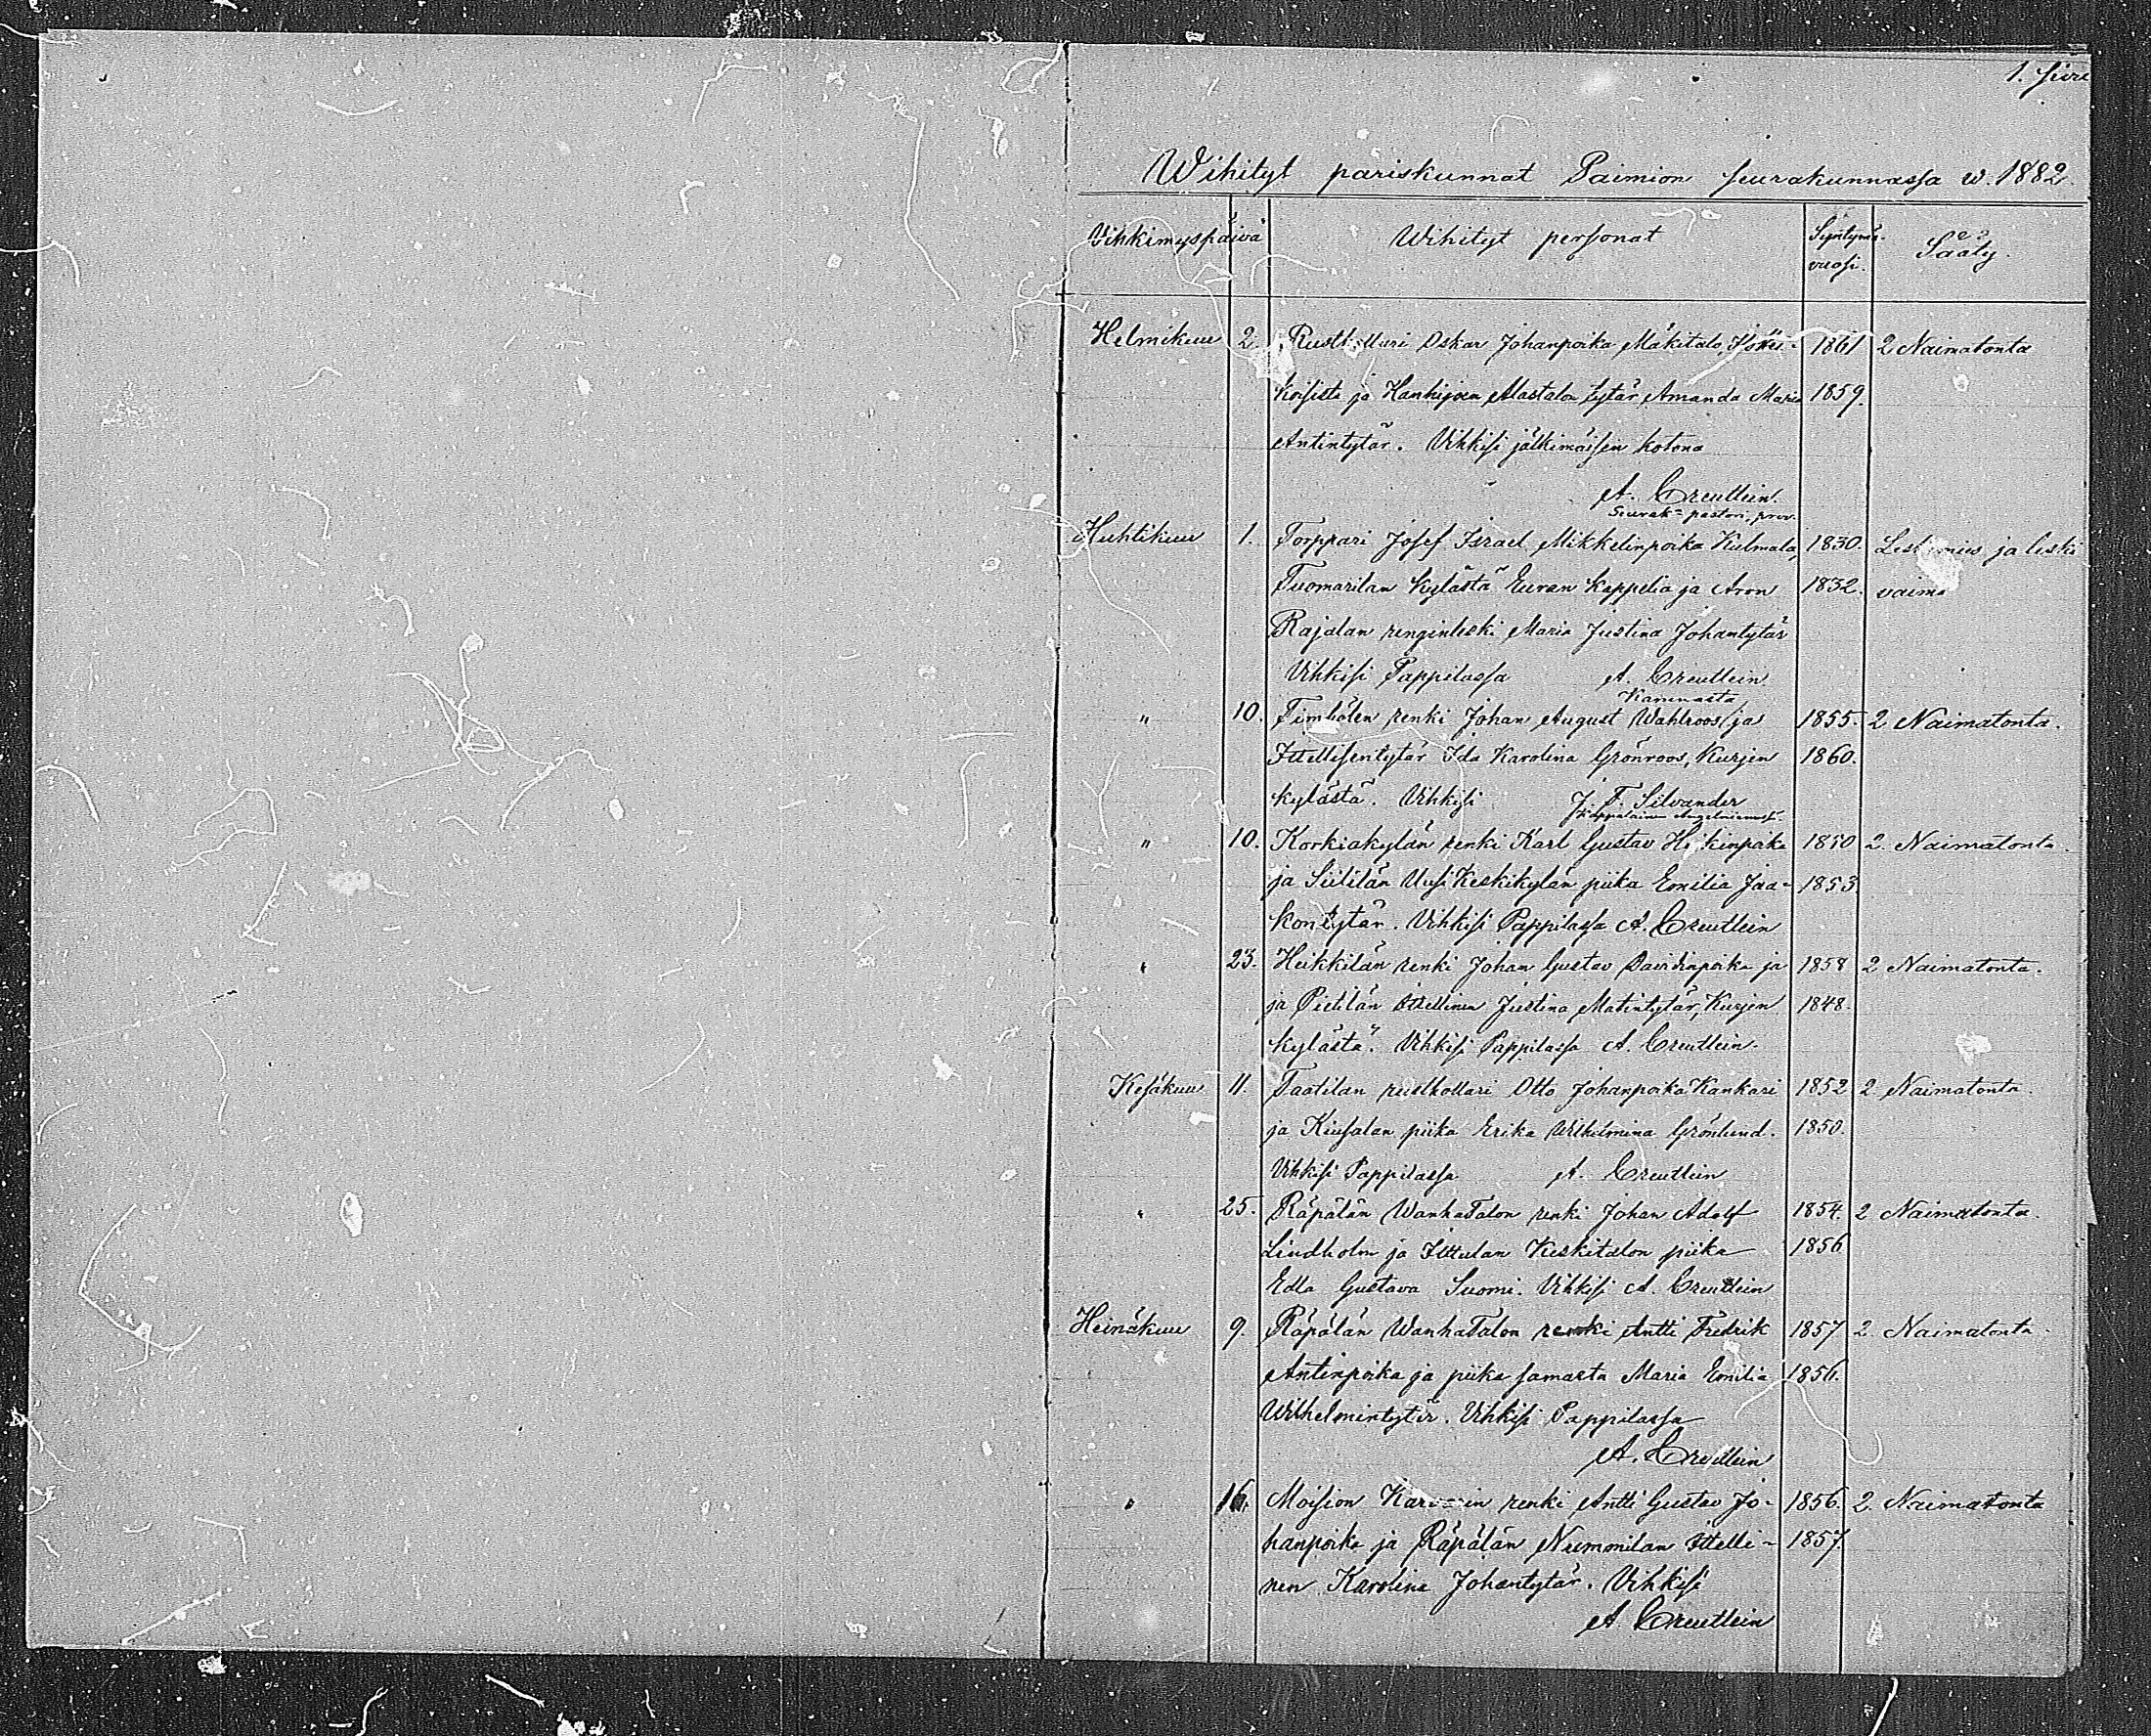 1. Sivu
Wihityt pariskunnat Paimion seurakunnassa w. 1882.
Vihkimyspäivä Wihityt personat Syntymä- Sääty.
vuosi.
Helmikuu 2. Rusthollari Oskar Johanpoika Mäkitalo, 1861 2 Naimatonta
ja Hanhijoen Alastalon tytär Amanda Maria 1859.
Antintytär. Vihkisi jälkimäissen kotona
A. Creutlein.
Seurak= pastori, prov.
Huhtikuu 1. Torppari Josef Israel Mikkelinpoika Kulmala, 1830. Leskimies ja leski
Tuomarilan kylästä Euran kappelia ja Aron 1832. vaimo
Rajalan renginleski Maria Justina Johantytär
Vihkisi Pappilassa A. Creutlein
Karunasta
" 10. renki Johan August Wahlroos ja 1855. 2 Naimatonta.
Ittellisentytär Ida Karolina Grönroos, Kurjen 1860.
kylästä. Vihkisi J. F. Silvander
Kappalainen Angelniemessä.
" 10. Korkiakylän renki Karl Gustav Heikinpoika 1850 2. Naimatonta.
ja Siililän Uusi Keskikylän piika Emilia Jaa- 1853
kontytär. Vihkisi Pappilassa A. Creutlein
" 23. Heikkilän renki Johan Gustav Davidinpoika ja 1858 2 Naimatonta.
ja Pietilän Ittellinen Justina Matintytär, Kurjen 1848.
kylästä. Vihkisi Pappilassa A. Creutlein.
Kesäkuu 11. Taatilan rusthollari Otto Johanpoika Kankari 1852 2 Naimatonta.
ja Kiusalan piika Erika Wilhelmina Grönlund. 1850.
Vihkisi Pappilassa A. Creutlein
" 25. Räpälän WanhaTalon renki Johan Adolf 1854. 2 Naimatonta.
Lindholm ja Ittulan Keskitalon piika 1856
Edla Gustava Suomi. Vihkisi A. Creutlein
Heinäkuu 9. Räpälän WanhaTalon renki Antti Fredrik 1857 2. Naimatonta.
Antinpoika ja piika samasta Maria Emilia 1856.
Wilhelmintytär. Vihkisi Pappilassa
A. Creutlein
" 16. Moision renki Antti Gustav Jo- 1856. 2. Naimatonta
hanpoika ja Räpälän Nummilan Ittelli- 1857.
nen Karolina Johantytär. Vihkisi
A. Creutlein